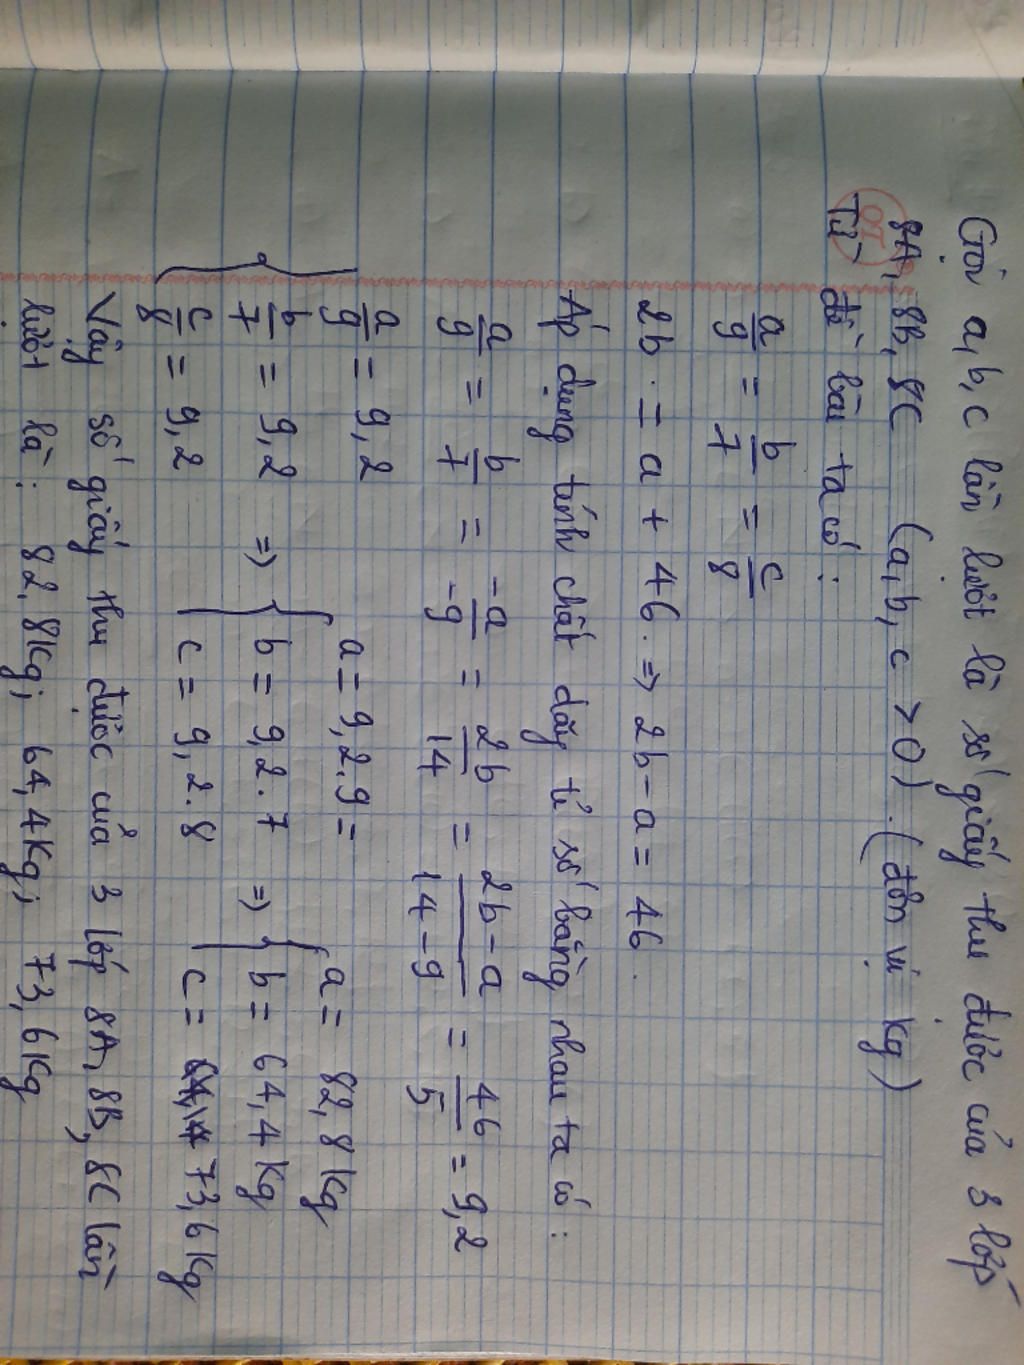 Gọi a, b, c lần lượt là số giấy thu được của 3 lớp
8A, 8B, 8C (a, b, c > 0). (đơn vị kg)
Từ đề bài ta có:
a/9 = b/7 = c/8
2b = a + 46. => 2b - a = 46.
Áp dụng tính chất dãy tỉ số bằng nhau ta có:
a/9 = b/7 = -a/-9 = 2b/14 = 2b-a/14-9 = 46/5 = 9,2
a/9 = 9,2 a = 9,2.9 = a = 82,8kg
b/7 = 9,2 => b = 9,2.7 => b = 64,4kg
c/8 = 9,2 c = 9,2.8 c = 73,6kg
Vậy số giấy thu được của 3 lớp 8A, 8B, 8C lần
lượt là: 82,8kg; 64,4kg; 73,6kg